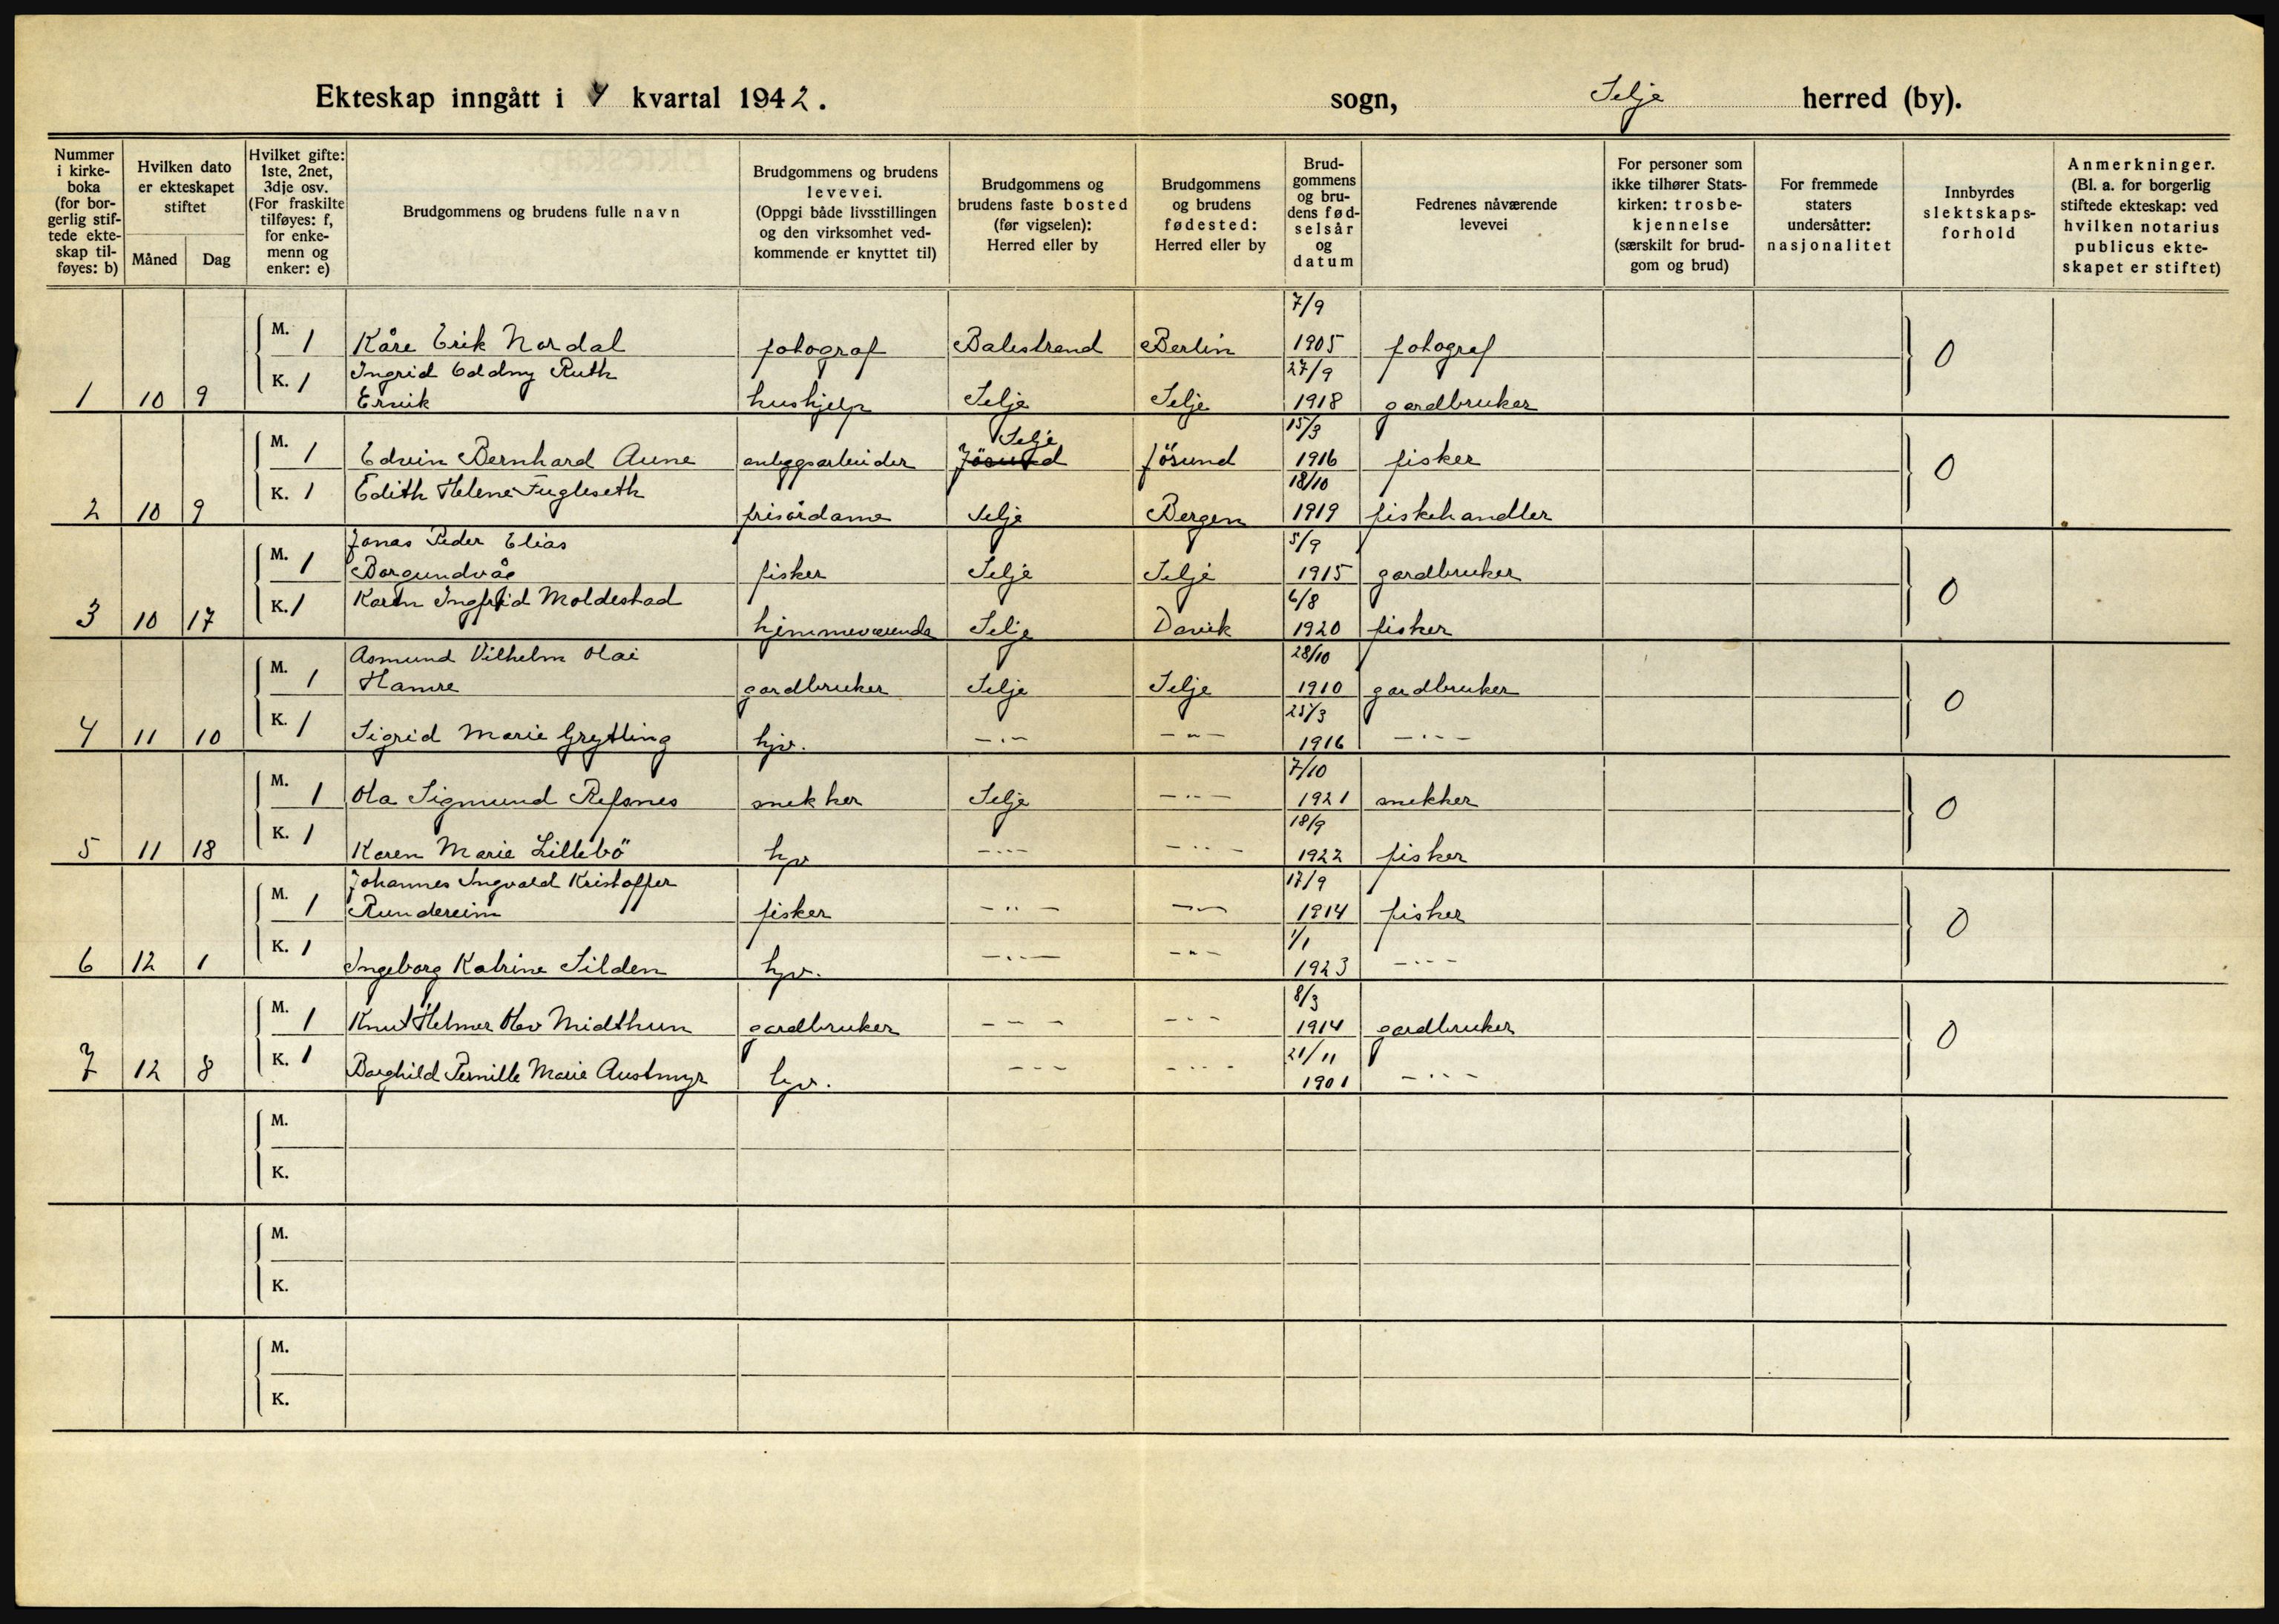 Ekteskap inngått i 4 kvartal 1942. sogn, Selje herred (by).
Nummer i kirkeboka (for borgerlig stiftede ekteskap tilføyes: b)
Hvilken dato er ekteskapet stiftet
Måned Dag
Hvilket gifte: 1ste, 2net, 3dje osv. (For fraskilte tilføyes: f, for enkemenn og enker: e)
Brudgommens og brudens fulle navn
Brudgommens og brudens levevei. (Oppgi både livsstillingen og den virksomhet vedkommende er knyttet til)
Brudgommens og brudens faste bosted (før vigselen): Herred eller by
Brudgommens og brudens fødested: Herred eller by
Brudgommens og brudens fødselsår og datum
Fedrenes nåværende levevei
For personer som ikke tilhører Statskirken: trosbekjennelse (særskilt for brudgom og brud)
For fremmede staters undersåtter: nasjonalitet
Innbyrdes slektskapsforhold
Anmerkninger. (Bl. a. for borgerlig stiftede ekteskap: ved hvilken notarius publicus ekteskapet er stiftet)
7/9
M. 1 Kåre Erik Nordal fotograf Balestrand Berlin 1905 fotograf 0
K. 1 Ingrid Oddny Ruth 27/9
1 10 9 Ervik hushjelp Selje Selje 1918 gardbruker
Selje 15/3
M. 1 Edvin Bernhard Aune anleggsarbeider Jösund Jösund 1916 fisker 0
K. 1 Edith Helene Fugleseth 18/10
2 10 9 frisördame Selje Bergen 1919 fiskehandler
Jonas Peder Elias 5/9
M. 1 Borgundvåg fisker Selje Selje 1915 gardbruker 0
K. 1 Karen Ingfrid Moldestad 6/8
3 10 17 hjemmeværende Selje Davik 1920 fisker
Asmund Vilhelm Olai 28/10
M. 1 Hamre gardbruker Selje Selje 1910 gardbruker 0
K. 1 25/3
4 11 10 Sigrid Marie Grytting hjv. — " — — " — 1916 — " —
7/10
M. 1 Ola Sigmund Refsnes snekker Selje — " — 1921 snekker 0
K. 1 18/9
5 11 18 Karen Marie Lillebö hjv — " — — " — 1922 fisker
Johannes Ingvald Kristoffer 17/9
M. 1 Rundereim fisker — " — — " — 1914 fisker 0
K. 1 1/1
6 12 1 Ingeborg Katrine Silden hjv. — " — — " — 1923 — " —
8/3
M. 1 Knut Helmer Olav Midthun gardbruker — " — — " — 1914 gardbruker 0
K. 1 21/11
7 12 8 Borghild Pernille Marie Austmyr hjv. — " — — " — 1901 — " —
M.
K.
M.
K.
M.
K.